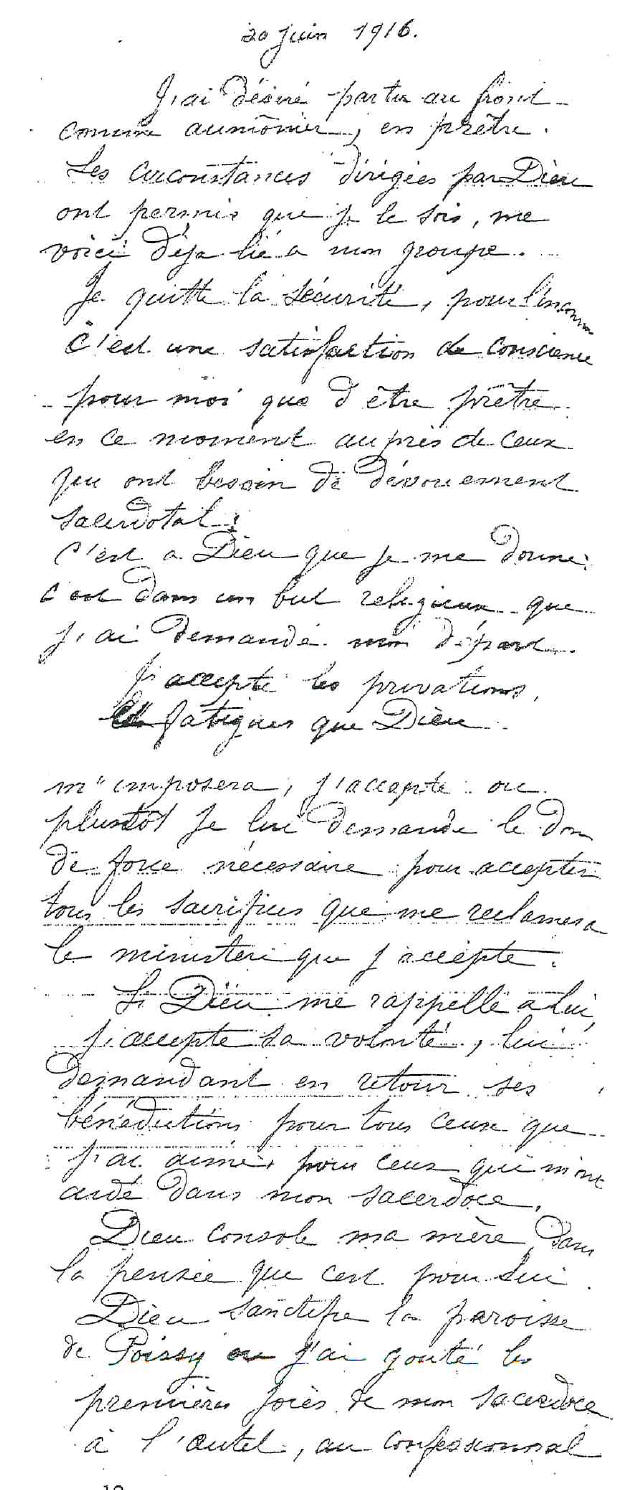 20 juin 1916.
J'ai désiré partir au front
comme aumônier, en prêtre.
Les circonstances dirigées par Dieu
ont permis que je le sois, me
voici déjà lié a mon groupe.
Je quitte la sécurité, pour l'inconnu
C'est une satisfaction de conscience
pour moi que d'être prêtre
en ce moment auprès de ceux
qui ont besoin de dévouement
sacerdotal.
C'est a Dieu que je me donne.
c'est dans un but religieux que
j'ai demandé mon départ.
J'accepte les privations,
les fatigues que Dieu
m'imposera, j'accepte ou
plustôt je lui demande le don
de force nécessaire pour accepter
tous les sacrifices que me reclamera
le ministère que j'accepte.
Si Dieu me rappelle a lui,
j'accepte sa volonté, lui
demandant en retour ses
bénédictions pour tous ceux que
j'ai aimés, pour ceux qui m'ont
aidé dans mon sacerdoce.
Dieu console ma mère dans
la pensée que c'est pour Lui.
Dieu sanctifie la paroisse
de Poissy ou j'ai gouté les
premières joies de mon sacerdoce
à l'autel, au confessionnal